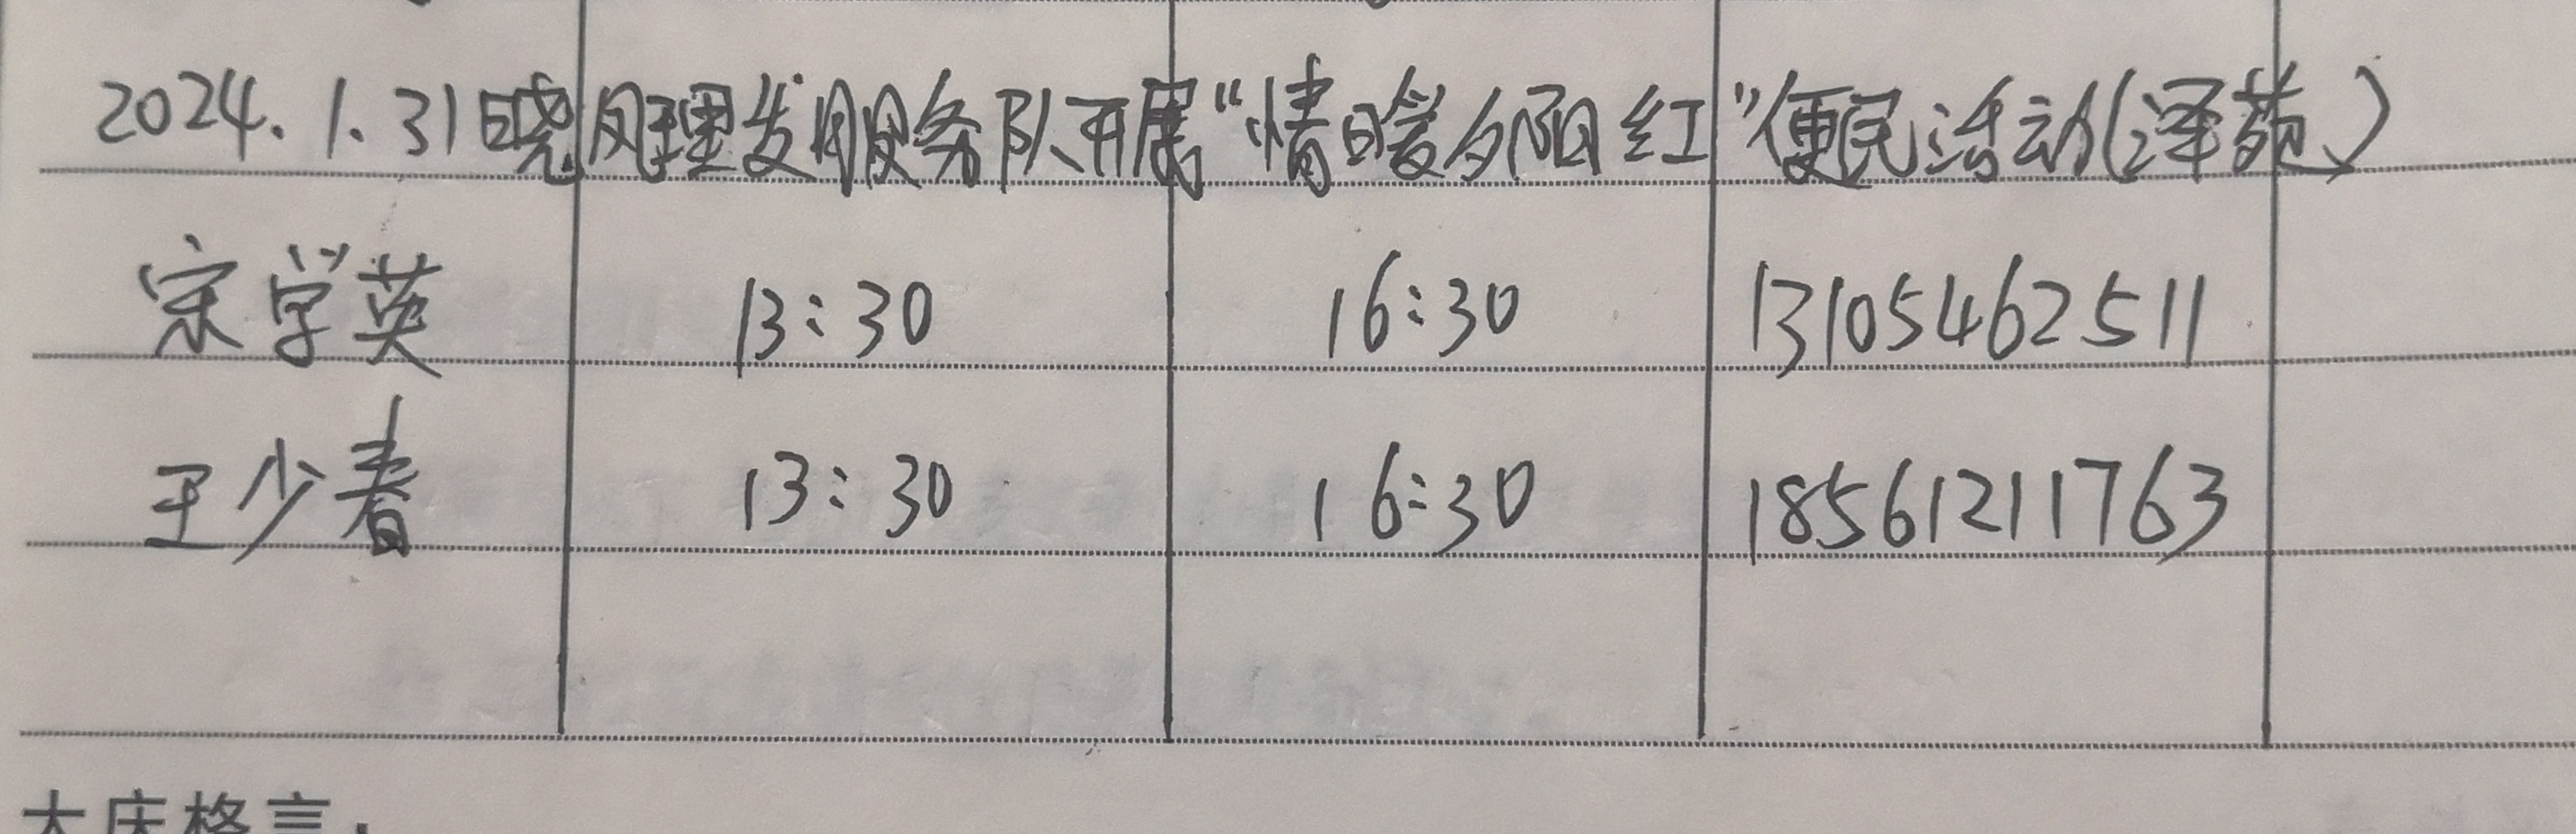 2024.1.31晓风理发服务队开展“情暖夕阳红”便民活动(泽苑)
宗学英 13:30 16:30 13105462511
王少春 13:30 16:30 18561211763
大庆格言: